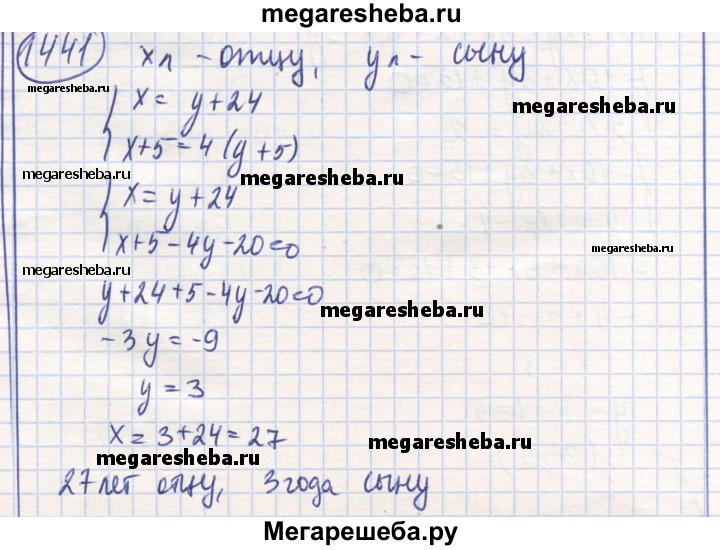 megaresheba.ru
1441 x л - отцу, y л - сыну
megaresheba.ru
x = y + 24
megaresheba.ru
x + 5 = 4 (y + 5)
megaresheba.ru
megaresheba.ru
x = y + 24
x + 5 - 4y - 20 = 0
megaresheba.ru
megaresheba.ru
y + 24 + 5 - 4y - 20 = 0
megaresheba.ru
- 3y = -9
y = 3
x = 3 + 24 = 27
megaresheba.ru
megaresheba.ru
27 лет отцу, 3 года сыну
Мегарешеба.ру